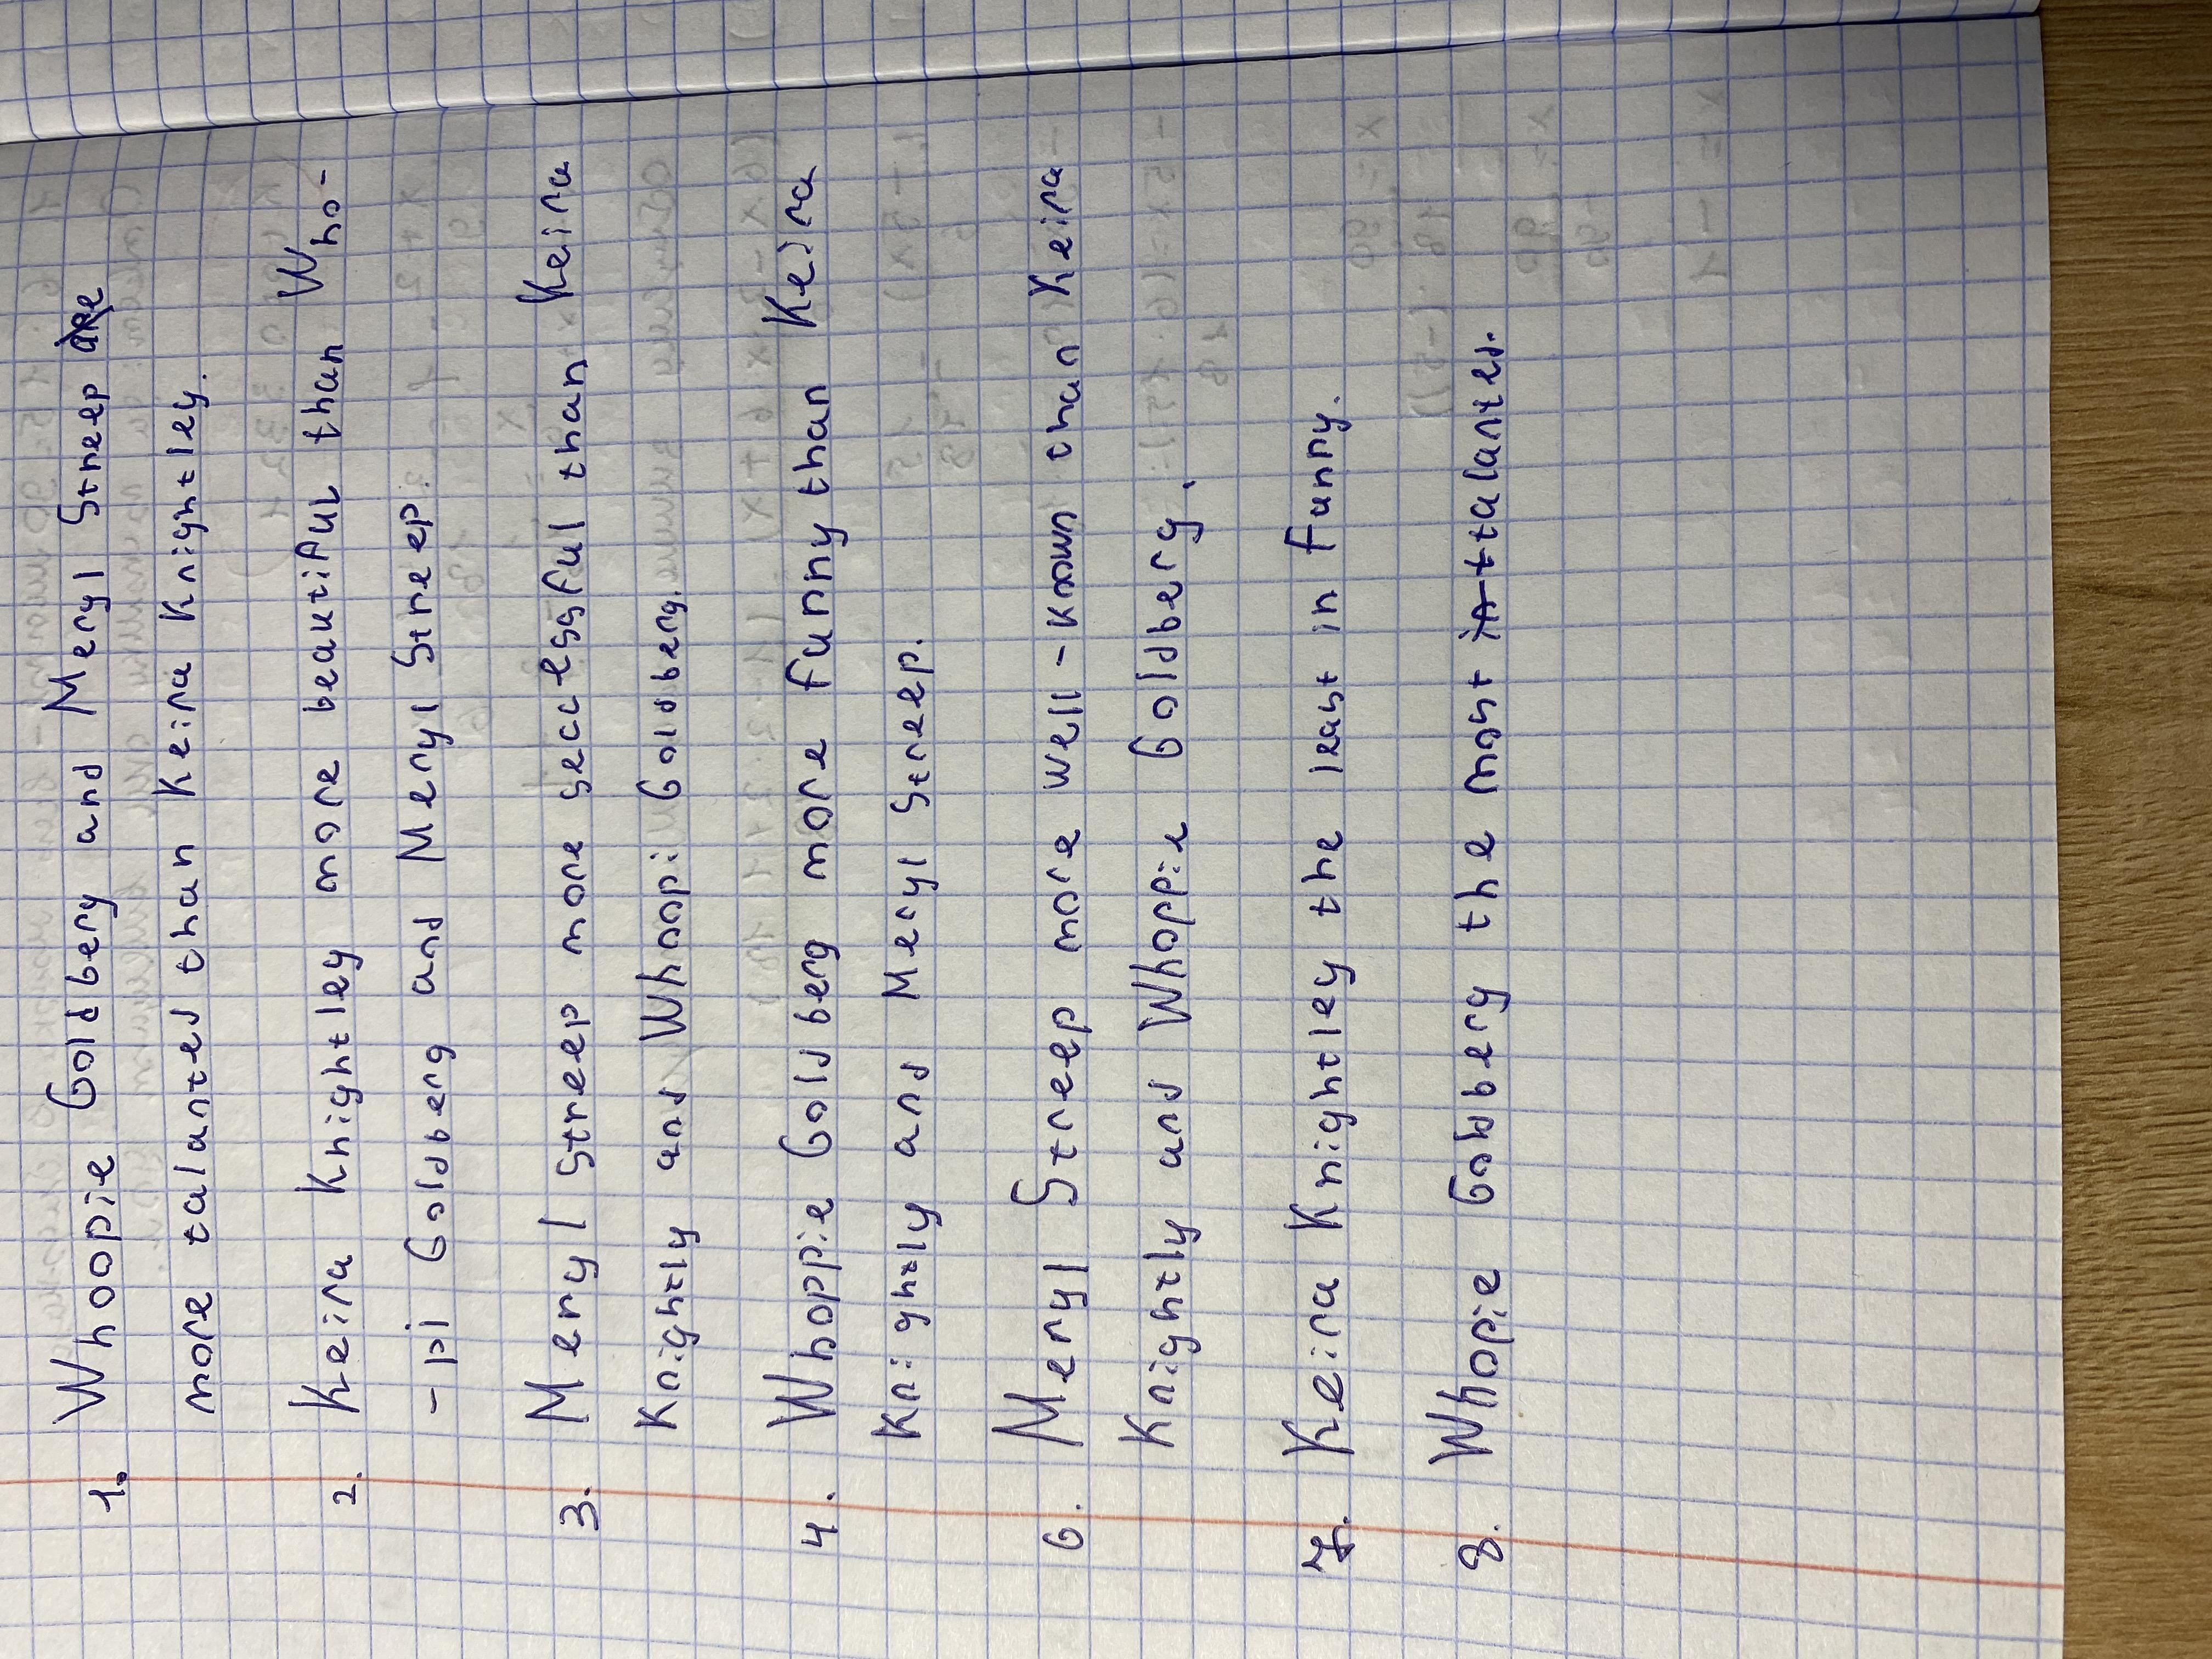 1. Whoopie Goldberg and Meryl Streep are
more talanted than Keira Knightley.
2. Keira Knightley more beautiful than Who-
-pi Goldberg and Meryl Streep.
3. Meryl Streep more seccessful than Keira
Knightly and Whoopi Goldberg.
4. Whoppie Goldberg more funny than Keira
Knightly and Meryl Streep.
6. Meryl Streep more well-known than Keira
Knightly and Whoppie Goldberg.
7. Keira Knightley the least in funny.
8. Whopie Goldberg the most talanted.